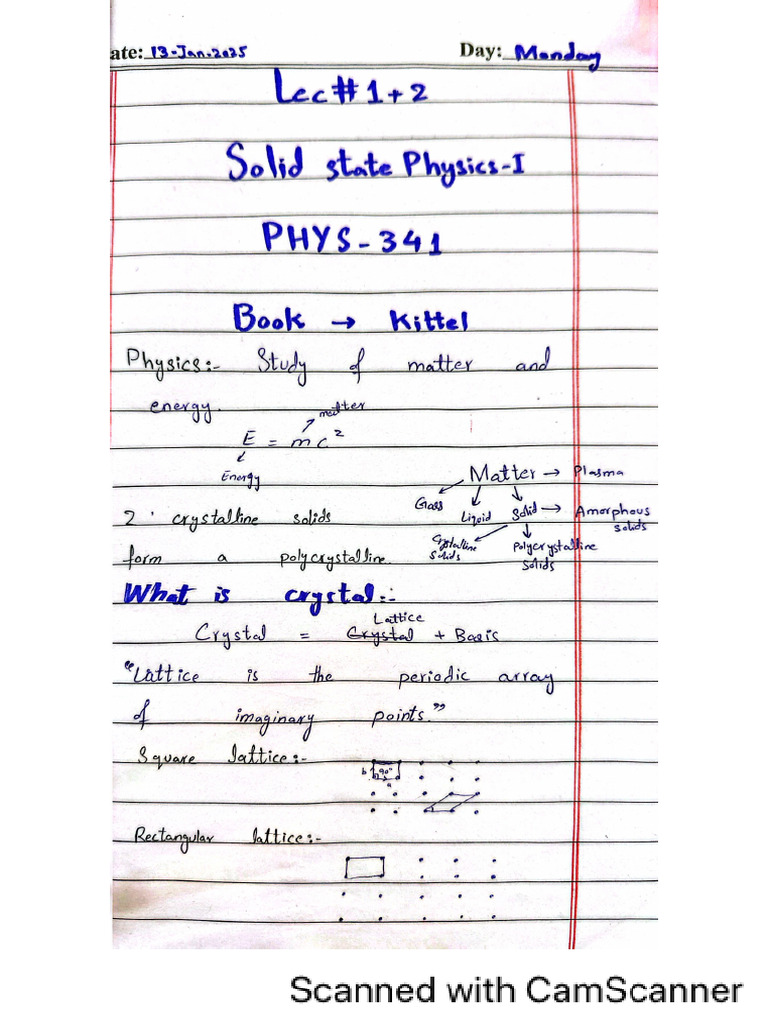 ate: 13-Jan-2025 Day: Monday
Lec# 1+2
Solid state Physics-I
PHYS-341
Book → Kittel
Physics:- Study of matter and
energy.
matter
E = mc²
Energy
Matter → Plasma
Gass Liquid Solid → Amorphous solids
Crystalline solids Polycrystalline solids
2 crystalline solids
form a polycrystalline.
What is crystal:-
Lattice
Crystal = Crystal + Basis
"Lattice is the periodic array
of imaginary points."
Square lattice:-
b 90°
a
Rectangular lattice:-
Scanned with CamScanner